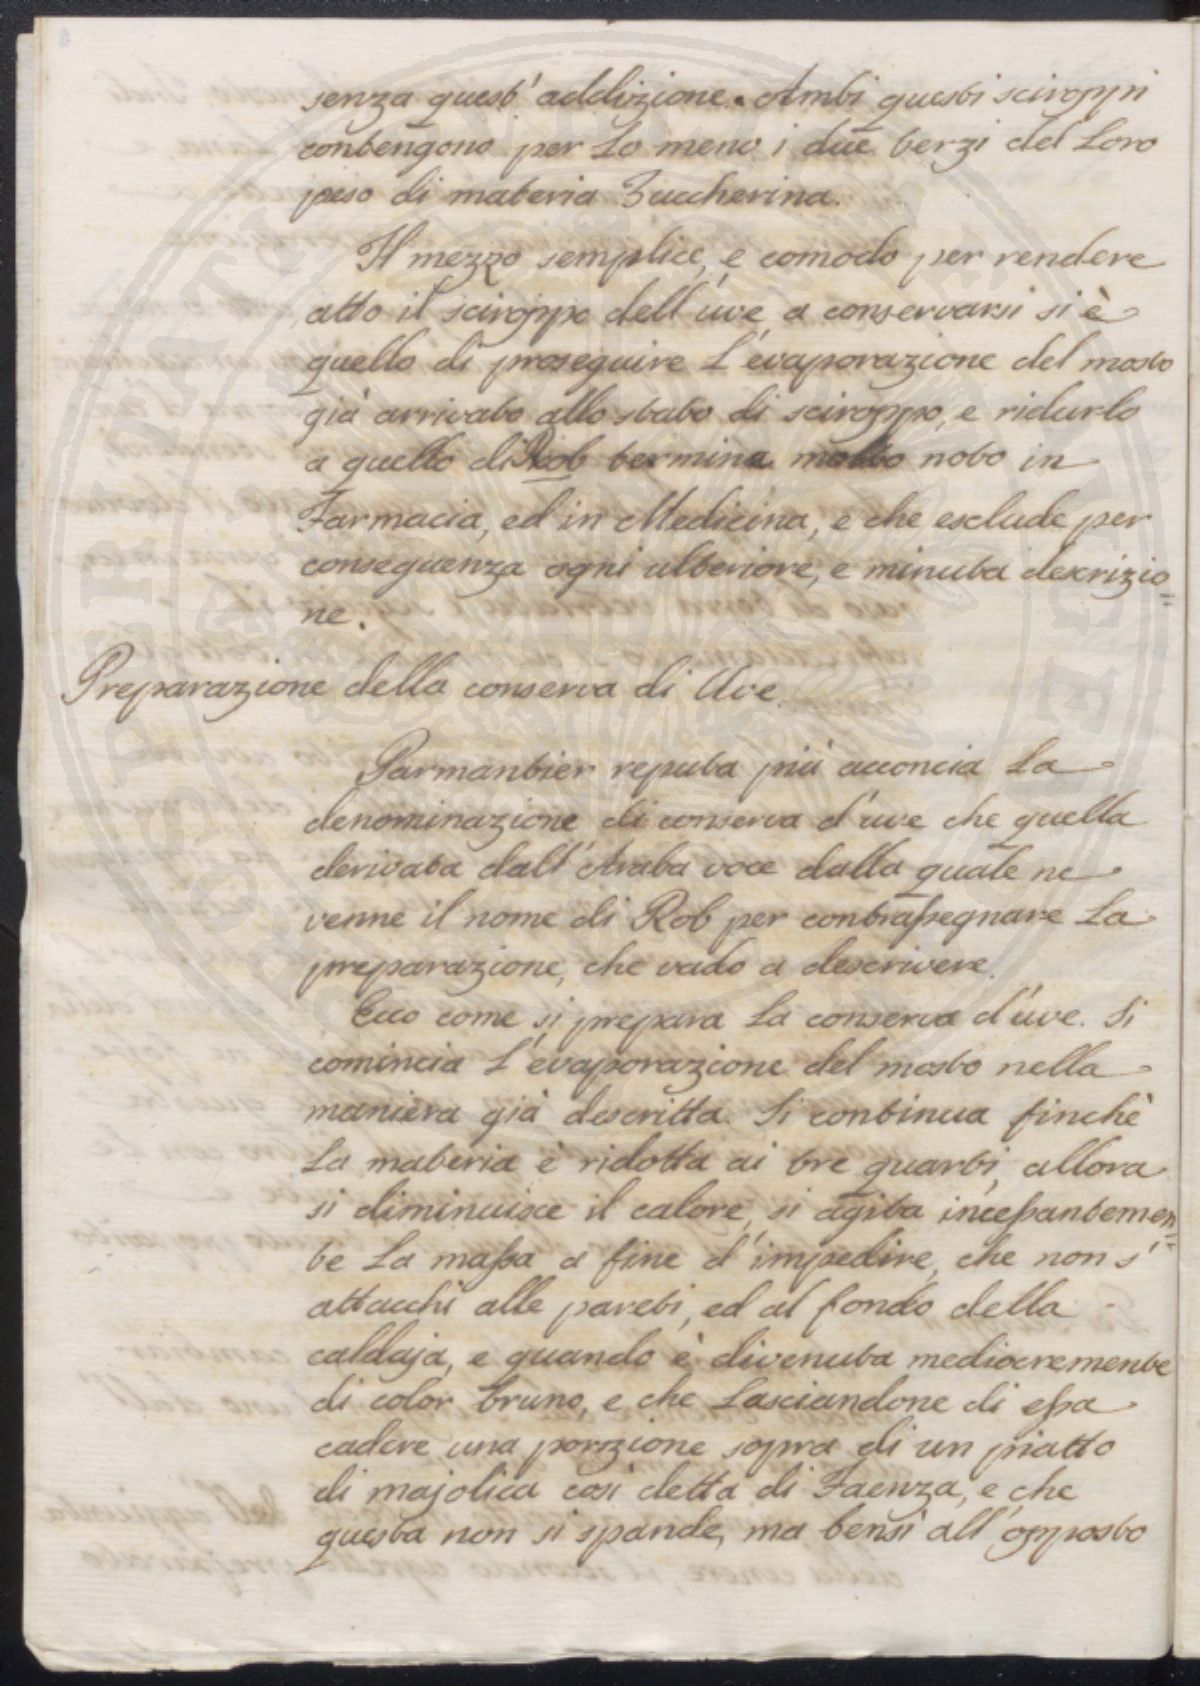 senza quest' addizione. Ambi questi sciroppi
contengono per lo meno i due terzi del loro
peso di materia Zuccherina.
Il mezzo semplice, e comodo per rendere
atto il sciroppo dell'uve a conservarsi si è
quello di proseguire l'evaporazione del mosto
già arrivato allo stato di sciroppo, e ridurlo
a quello di Rob termine molto noto in
Farmacia, ed in Medicina, e che esclude per
conseguenza ogni ulteriore, e minuta descrizio=
ne.
Preparazione della conserva di Uve.
Parmantier reputa più acconcia la
denominazione di conserva d'uve che quella
derivata dall'Araba voce dalla quale ne
venne il nome di Rob per contrassegnare la
preparazione, che vado a descrivere.
Ecco come si prepara la conserva d'uve. Si
comincia l'evaporazione del mosto nella
maniera già descritta. Si continua finchè
la materia è ridotta ai tre quarti, allora
si diminuisce il calore, si agita incessantemen=
te la massa a fine d'impedire, che non s'
attacchi alle pareti, ed al fondo della
caldaja, e quando è divenuta mediocremente
di color bruno, e che lasciandone di essa
cadere una porzione sopra di un piatto
di majolica così detta di Faenza, e che
questa non si spande, ma bensì all'opposto